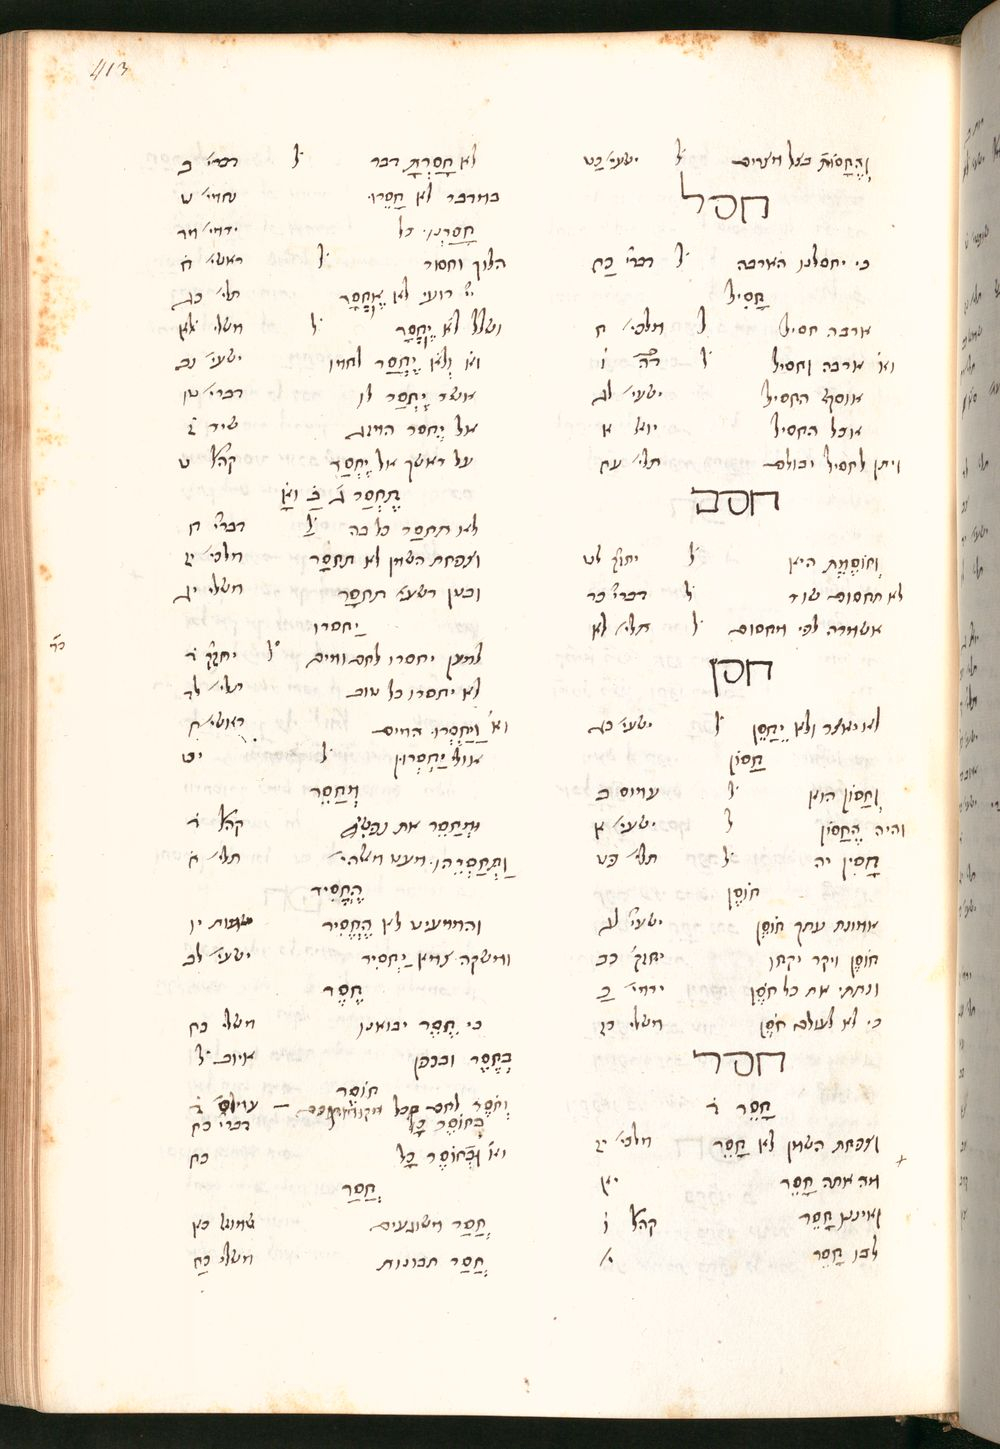 413
וְהֶחָסוּת בצל מצרים ל ישעי׳ ל
חסל
כי יחסלנו הארבה ל דברי׳ כח
חָסִיל
ארבה חסיל ל מלכי׳ ח
וא׳ ארבה וחסיל ל דה׳ ו
אוסף החסיל ישעי׳ לג
אוכל החסיל יואל א
ויתן לחסיל יבולם תלי׳ עח
חסם
וְחוֹסֶמֶת היא ל יחזק׳ לט
לא תחסום שור ל דברי׳ כה
אשמרה לפי מחסום ל תלי׳ לט
חסן
לא יאצר ולא יֵחָסֵן ל ישעי׳ כג
חָסוֹן
וְחָסוֹן הוא ל עמוס ב
והיה הֶחָסוֹן ל ישעי׳ א
חֲסִין יה ל תלי׳ פט
חוֹסֶן
אמונת עתך חוֹסֶן ישעי׳ לג
חוֹסֶן ויקר יקחו יחזק׳ כב
ונתתי את כל חֹסֶן ירמי׳ כ
כי לא לעולם חֹסֶן משלי כז
חסר
חָסֵר
וצפחת השמן לא חָסֵר מלכי׳ יז
מה אתה חָסֵר יא
ואיננו חָסֵר קהל׳ ו
לבו חָסֵר י
לא חָסַרְתָּ דבר ל דברי׳ ב
במדבר לא חָסֵרוּ נחמי׳ ט
חָסַרְנוּ כל ירמי׳ מד
הלוך וחסור ל ראשי׳ ח
יי׳ רועי לא אֶחְסָר תלי׳ כג
ושלל לא יֶחְסָר ל משלי לא
וא׳ וְלֹא יֶחְסַר לחמו ישעי׳ נא
אשר יֶחְסַר לו דברי׳ טו
אל יֶחסר המזג שיר ז
על ראשך אל יֶחְסַר קהל׳ ט
תֶּחְסַר
לא תחסר כל בה ל דברי׳ ח
וצפחת השמן לא תחסַר מלכי׳ יז
ובטן רשעי׳ תחסָר משלי יג
יַחסרו
למען יחסרו לחם ומים ל יחזק׳ ד
לא יחסרו כל טוב תלי׳ לד
וא׳ וַיַחְסְרוּ המים ראשי׳ ח
אולי יַחְסְרוּן ל יט
מְחַסֵּר
וּמְחַסֵּר את נפשי קהל׳ ד
וַתְּחַסְּרֵהוּ מעט תלי׳ ח
הֶחְסִיר
והממעיט לא הֶחְסִיר שמות יו
ומשקה צמא יַחְסִיר ישעי׳ לב
חֶסֶר
כי חֶסֶר יבואנו משלי כח
בְּחֶסֶר ובכפן איוב ל
חוֹסֶר
וְחֹסֶר לחם בכל מקומותיכם — עמוס ד
בְּחוֹסֶר כָּל דברי׳ כח
וא׳ וּבְחוֹסֶר כָּל כח
חֲסַר
חֲסַר משוגעים שמוא׳ כא
חֲסַר תבונות משלי כח